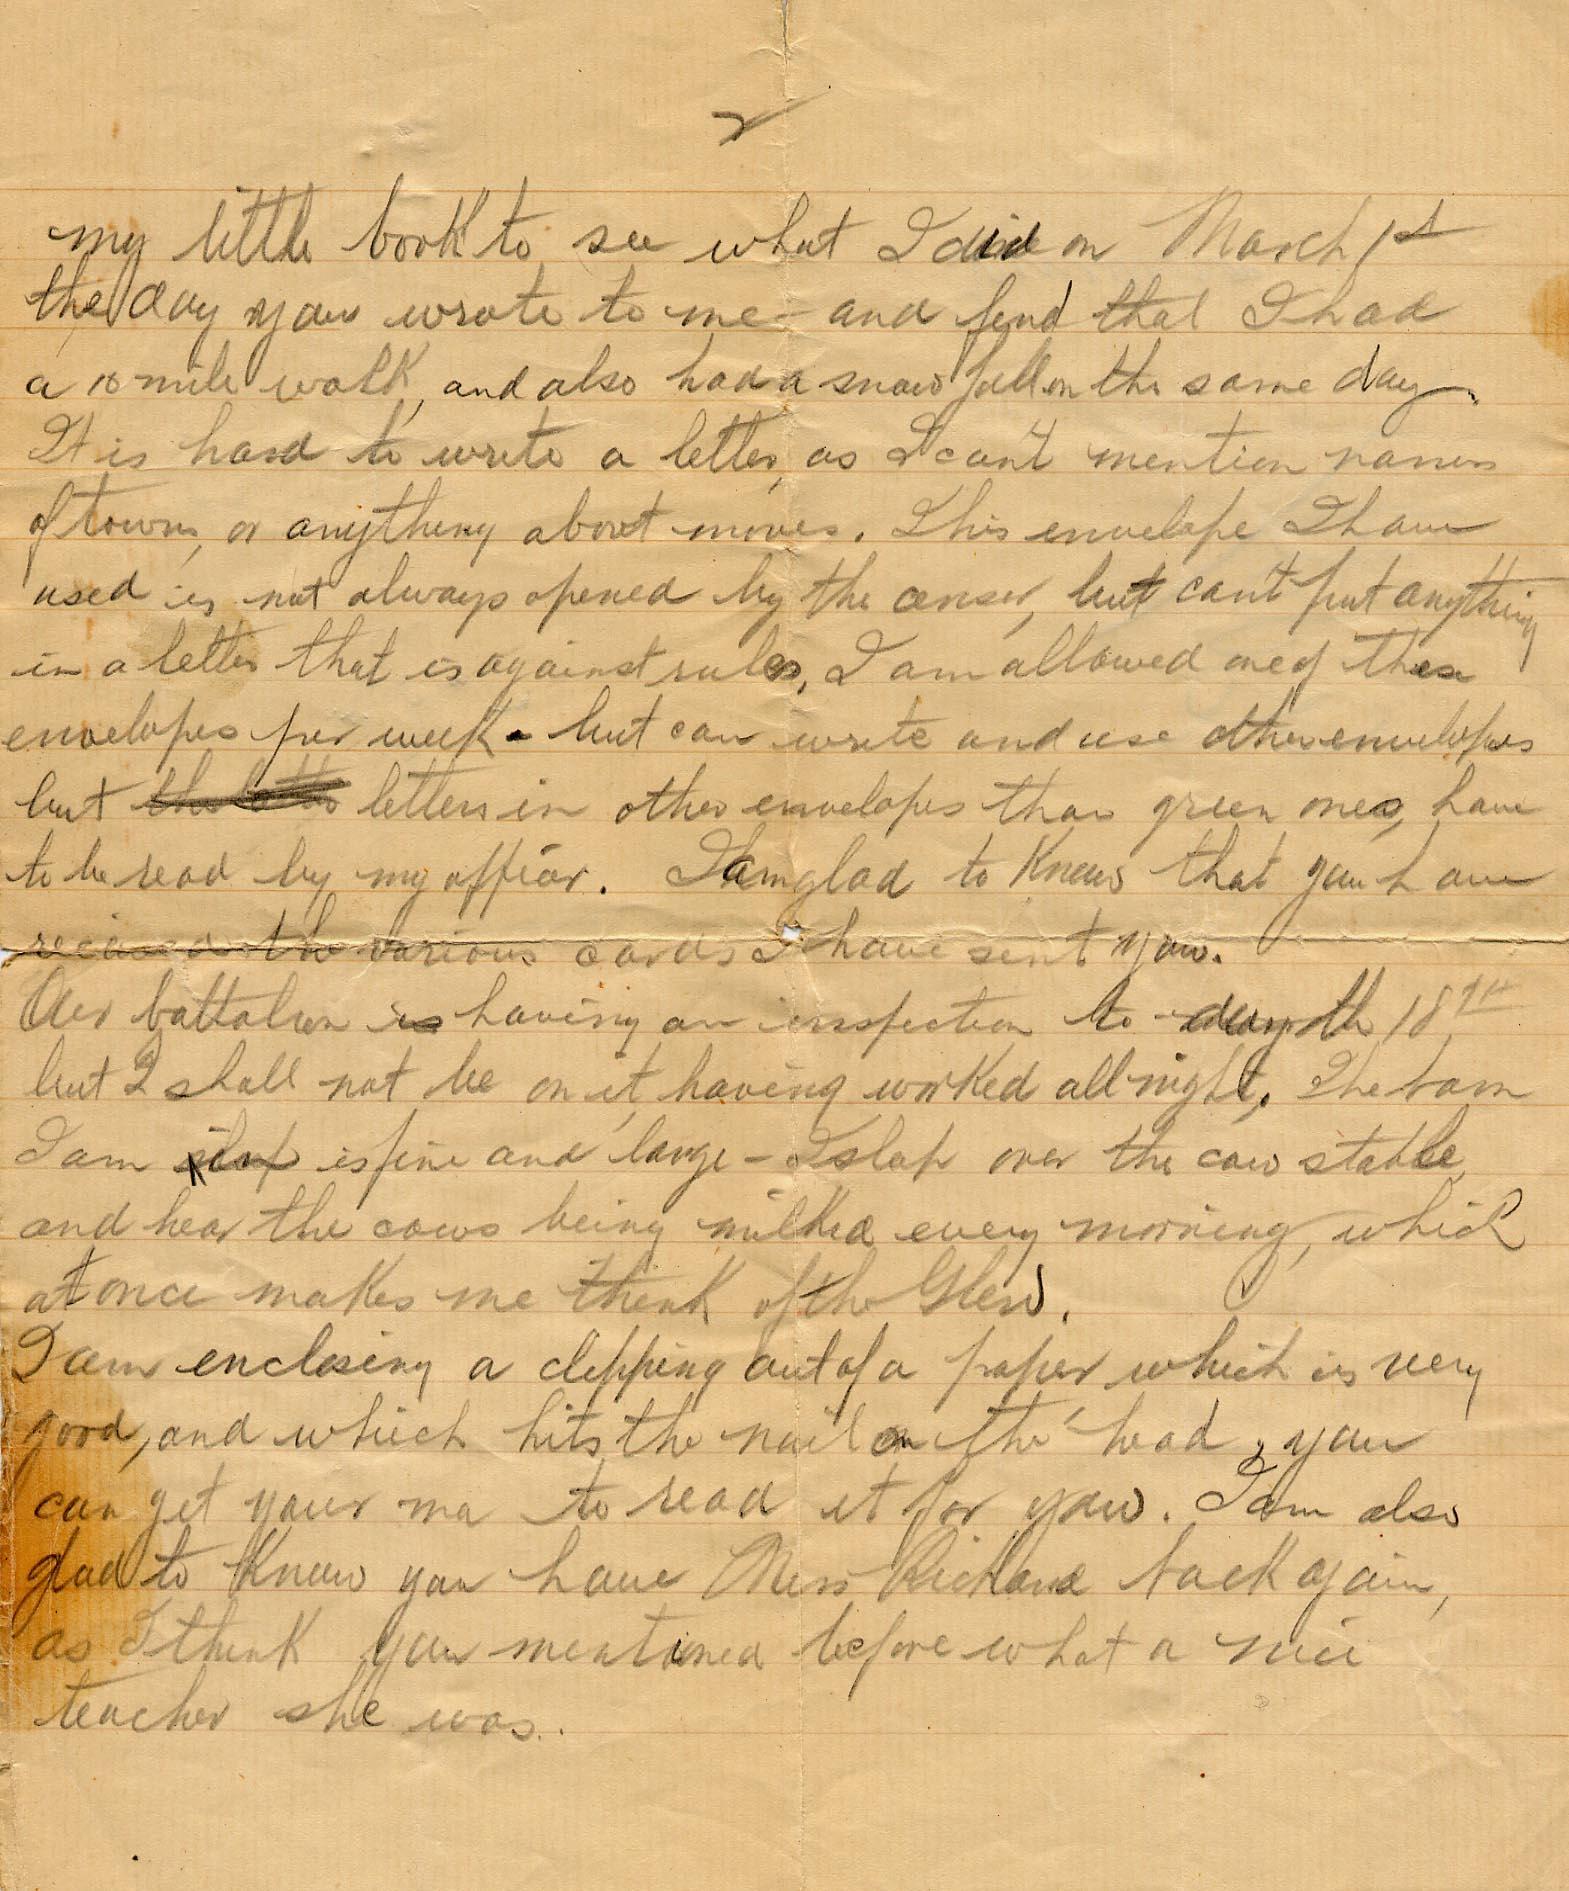 2
my little book to see what I did on March 1st
the day you wrote to me - and find that I had
a 10 mile walk, and also had a snow fall on the same day.
It is hard to write a letter, as I can't mention names
of towns, or anything about moves. This envelope I have
used is not always opened by the censor, but can't put anything
in a letter that is against rules, I am allowed one of these
envelopes per week - but can write and use other envelopes
but letters in other envelopes than green ones, have
to be read by my officer. I am glad to know that you have
recieved the various cards I have sent you.
Our battalion is having an inspection to-day the 18th
but I shall not be on it, having worked all night. The barn
I am is fine and large - I slep over the cow stable
and hear the cows being milked every morning, which
at once makes me think of the Glen.
I am enclosing a clipping out of a paper which is very
good, and which hits the nail on the head, you
can get your ma to read it for you. I am also
glad to know you have Miss Rickard back again,
as I think you mentioned before what a nice
teacher she was.